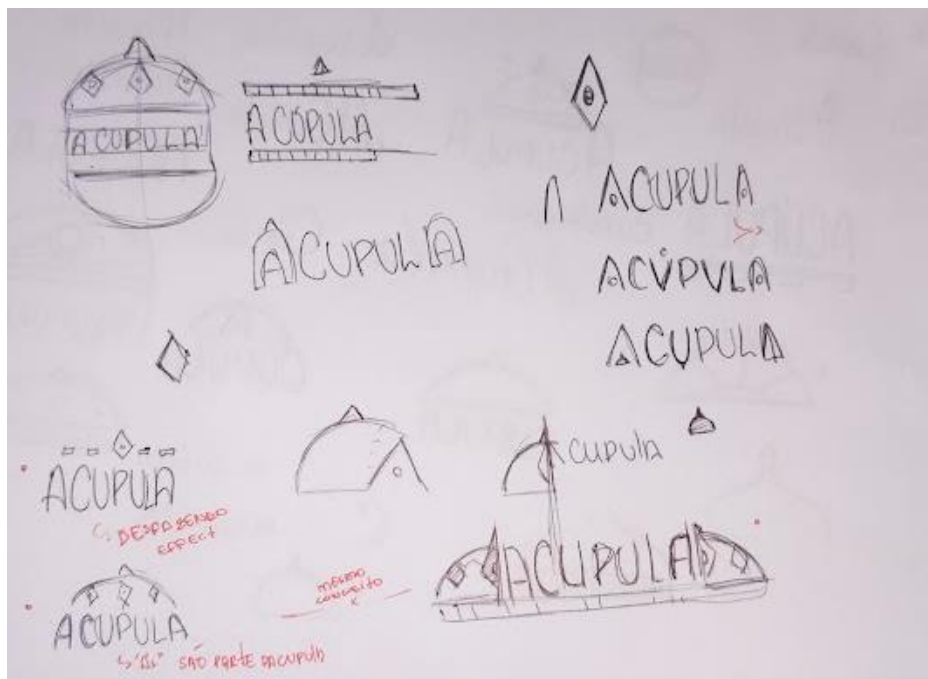 A CUPULA
A CÚPULA
ACUPULA
ACUPULA
ACÚPVLA
ACUPULA
ACUPULA
DESFAZENDO
EFFECT
CUPULA
ACUPULA
MESMO
CONCEITO
ACUPULA
"As" SÃO PARTE DA CUPULA